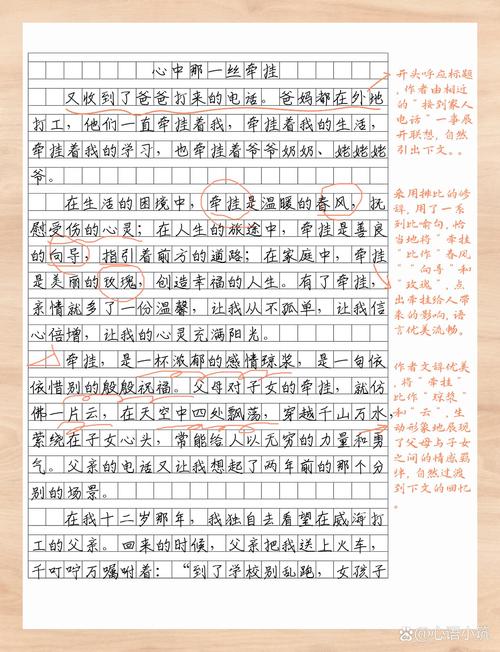 心中那一丝牵挂
又收到了爸爸打来的电话。爸妈都在外地
打工，他们一直牵挂着我，牵挂着我的生活，
牵挂着我的学习，也牵挂着爷爷奶奶、姥姥姥
爷。
在生活的困境中，牵挂是温暖的春风，抚
慰受伤的心灵；在人生的旅途中，牵挂是善良
的向导，指引着前方的道路；在家庭中，牵挂
是美丽的玫瑰，创造幸福的人生。有了牵挂，
亲情就多了一份温馨，让我从不孤单，让我信
心倍增，让我的心灵充满阳光。
牵挂，是一杯浓郁的感情琼浆，是一句依
依惜别的殷殷祝福。父母对子女的牵挂，就仿
佛一片云，在天空中四处飘荡，穿越千山万水，
萦绕在子女心头，常能给人以无穷的力量和勇
气。父亲的电话又让我想起了两年前的那个分
别的场景。
在我十二岁那年，我独自去看望在威海打
工的父亲。回来的时候，父亲把我送上火车，
千叮咛万嘱咐着：“到了学校别乱跑，女孩子
开头呼应标题
，作者由相近
的“接到家人
电话”一事展
开联想，自然
引出下文。。
采用排比的修
辞，用了一系
列比喻句，恰
当地将“牵挂
”比作“春风
”“向导”和
“玫瑰”，点
出牵挂给人带
来的影响，语
言优美流畅。
作者文辞优美
，将“牵挂”
比作“琼浆”
和“云”，生
动形象地展现
了父母与子女
之间的情感羁
绊，自然过渡
到下文的回忆
。
心语小筑